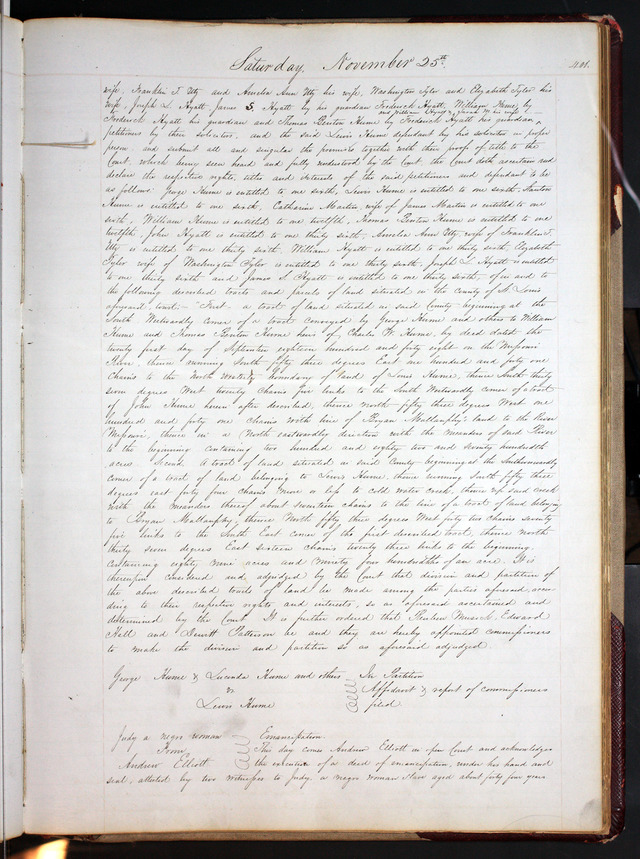 Saturday, November 25th. 401.
wife, Franklin T. Utty and Amelia Ann Utty his wife, Washington Tyler and Elizabeth Tyler his
wife, Joseph L. Hyatt, James S. Hyatt by his guardian Frederick Hyatt, William Hume, by
and William Hyatt & Sarah M. his wife
Frederick Hyatt his guardian and Thomas Benton Hume by Frederick Hyatt his guardian
petitions by their solicitor, and the said Lewis Hume defendant by his solicitor in proper
person and submit all and singular the premises together with their proofs of title to the
Court, which being seen heard and fully understood by the Court the Court doth ascertain and
declare the respective rights, titles and interests of the said petitioners and defendant to be
as follows. George Hume is entitled to one sixth, Lewis Hume is entitled to one sixth, Stanton
Hume is entitled to one sixth, Catharine Martin, wife of James Martin is entitled to one
sixth, William Hume is entitled to one twelfth, Thomas Benton Hume is entitled to one
twelfth, John Hyatt is entitled to one thirty sixth. Amelia Ann Utty wife of Franklin T.
Utty is entitled to one thirty sixth. William Hyatt is entitled to one thirty sixth Elizabeth
Tyler wife of Washington Tyler is entitled to one thirty sixth, Joseph L. Hyatt is entitled
to one thirty sixth and James S. Hyatt is entitled to one thirty sixth, of in and to
the following described tracts and parcels of land situated in the county of St Louis
aforesaid towit. "First. a tract of land situated in said County beginning at the
South Westwardly corner of a tract conveyed by George Hume and others to William
Hume and Thomas Benton Hume heirs of Charles F. Hume, by deed dated the
twenty first day of September eighteen hundred and forty eight on the Missouri
River, thence running South fifty three degrees East one hundred and forty one
chains to the North Westerly boundary of land of Lewis Hume, thence South thirty
seven degrees West twenty chains five links to the South Westwardly corner of a tract
of John Hume herein after described, thence North fifty three degrees West one
hundred and forty one chains with line of Bryan Mullanphy's land to the River
Missouri, thence in a North eastwardly direction with the meanders of said River
to the beginning containing two hundred and eighty two and seventy hundredth
acres. Second. A tract of land situated in said County beginning at the Southwardly
corner of a tract of land belonging to Lewis Hume, thence running South fifty three
degrees east forty four chains more or less to cold water creek, thence up said creek
with the meanders thereof about seventeen chains to the line of a tract of land belonging
to Bryan Mullanphy, thence North fifty three degrees West forty two chains seventy
five links to the South East corner of the first described tract, thence north
thirty seven degrees East sixteen chains twenty three links to the beginning.
Containing eighty nine acres and Ninety four hundredths of an acre. It is
thereupon considered and adjudged by the Court that division and partition of
the above described tracts of land be made among the parties aforesaid, accor
ding to their respective rights and interests, so as aforesaid ascertained and
determined by the Court. It is further ordered that Reuben Musick, Edward
Hall and Dewitt Patterson be and they are hereby appointed commissioners
to make the division and partition so as aforesaid adjudged.
George Hume & Lucinda Hume and others In Partition
vs Affidavit & report of commissioners
Lewis Hume filed
Judy a negro woman Emancipation.
From This day comes Andrew Elliott in open Court and acknowledges
Andrew Elliott the execution of a deed of emancipation, under his hand and
seal, attested by two witnesses to Judy, a negro woman slave aged about forty four years